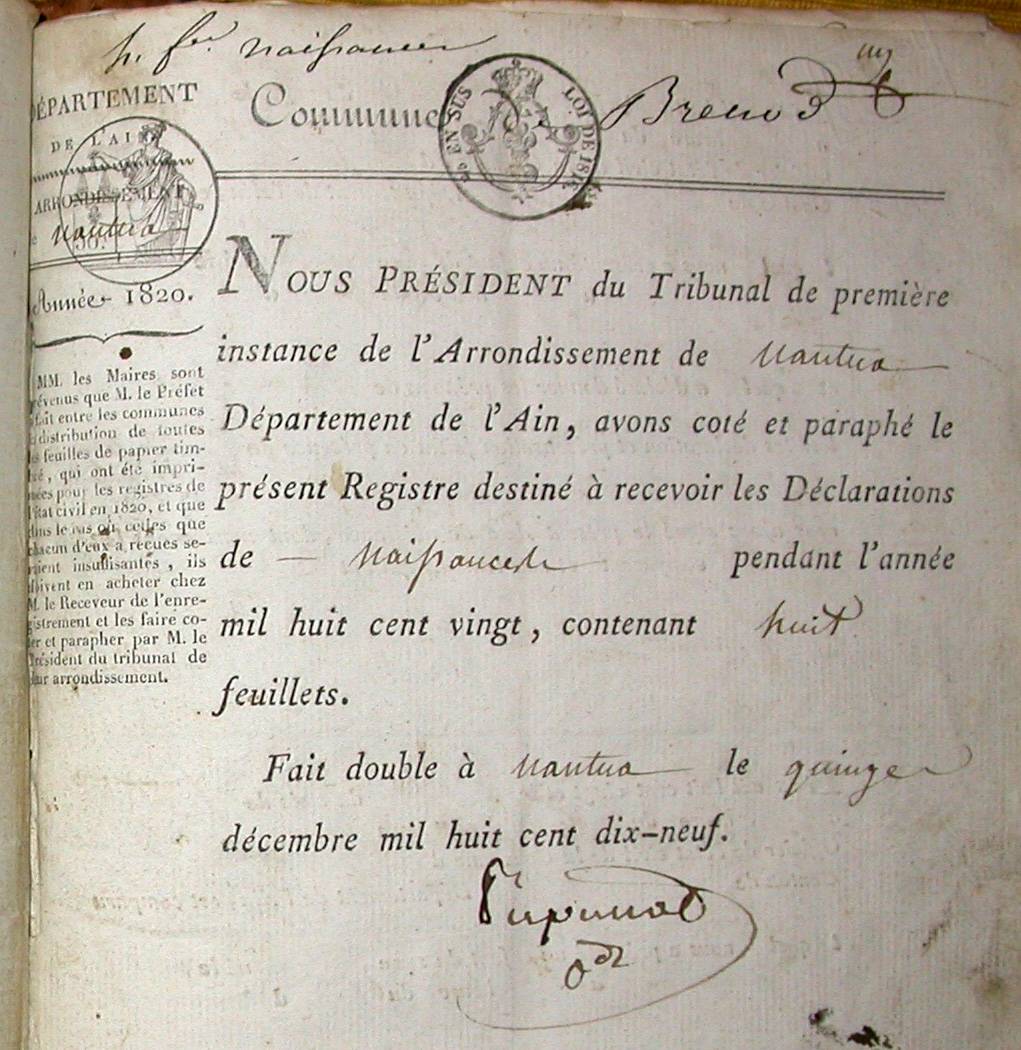 naissances
DÉPARTEMENT
DE L'AIN
ARRONDISSEMENT
de Nantua
Année 1820.
Commune de Brenod
EN SUS LOI DE 1816
50.c
MM. les Maires sont
prévenus que M. le Préfet
a fait entre les communes
la distribution de toutes
les feuilles de papier tim-
bré, qui ont été impri-
mées pour les registres de
l'état civil en 1820, et que
dans le cas où celles que
chacun d'eux a reçues se-
raient insuffisantes, ils
doivent en acheter chez
M. le Receveur de l'enre-
gistrement et les faire co-
ter et parapher par M. le
Président du tribunal de
leur arrondissement.
NOUS PRÉSIDENT du Tribunal de première
instance de l'Arrondissement de Nantua
Département de l'Ain, avons coté et paraphé le
présent Registre destiné à recevoir les Déclarations
de — Naissances pendant l'année
mil huit cent vingt, contenant huit
feuillets.
Fait double à Nantua le quinze
décembre mil huit cent dix-neuf.